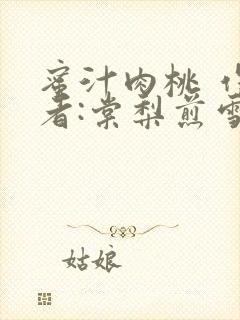 蜜汁肉桃
者:棠梨煎雪
姑娘